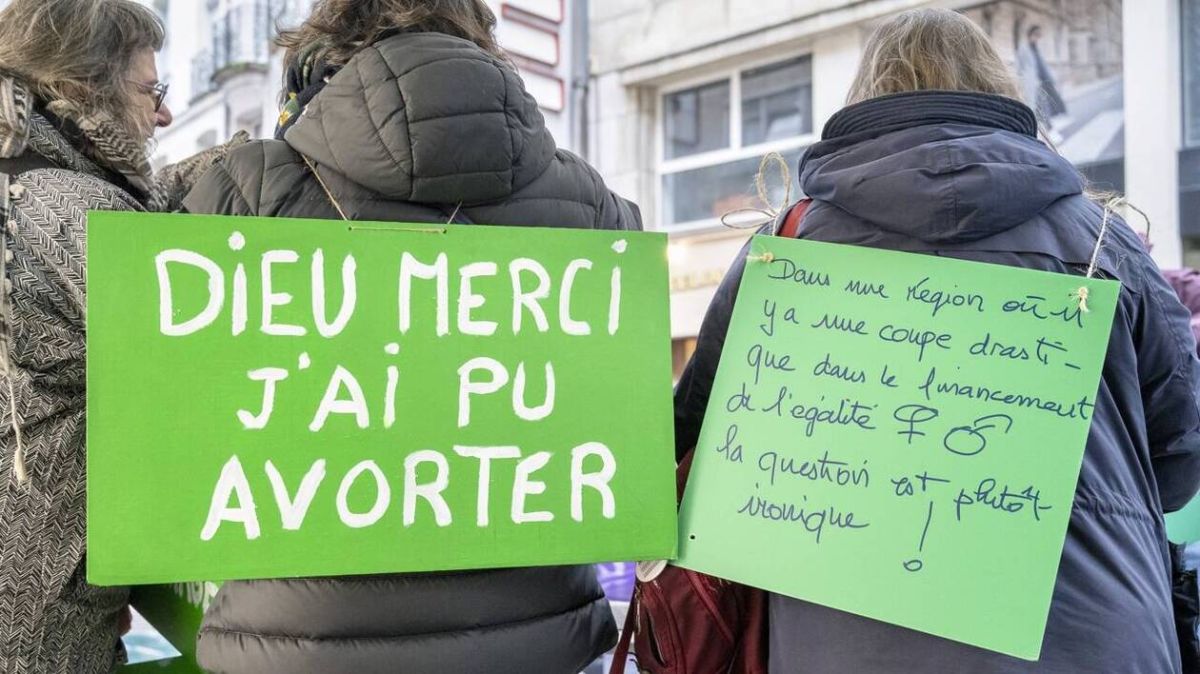 DiEU MERCi
J'Ai PU
AVORTER
Dans une région où il
y a une coupe drasti-
que dans le financement
de l'égalité ♀♂
la question est plutôt
ironique !